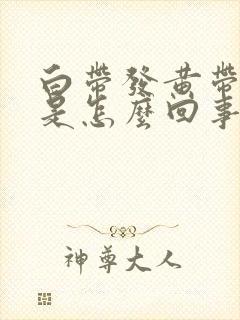 白帶發黃帶
是怎麼回事
神尊大人